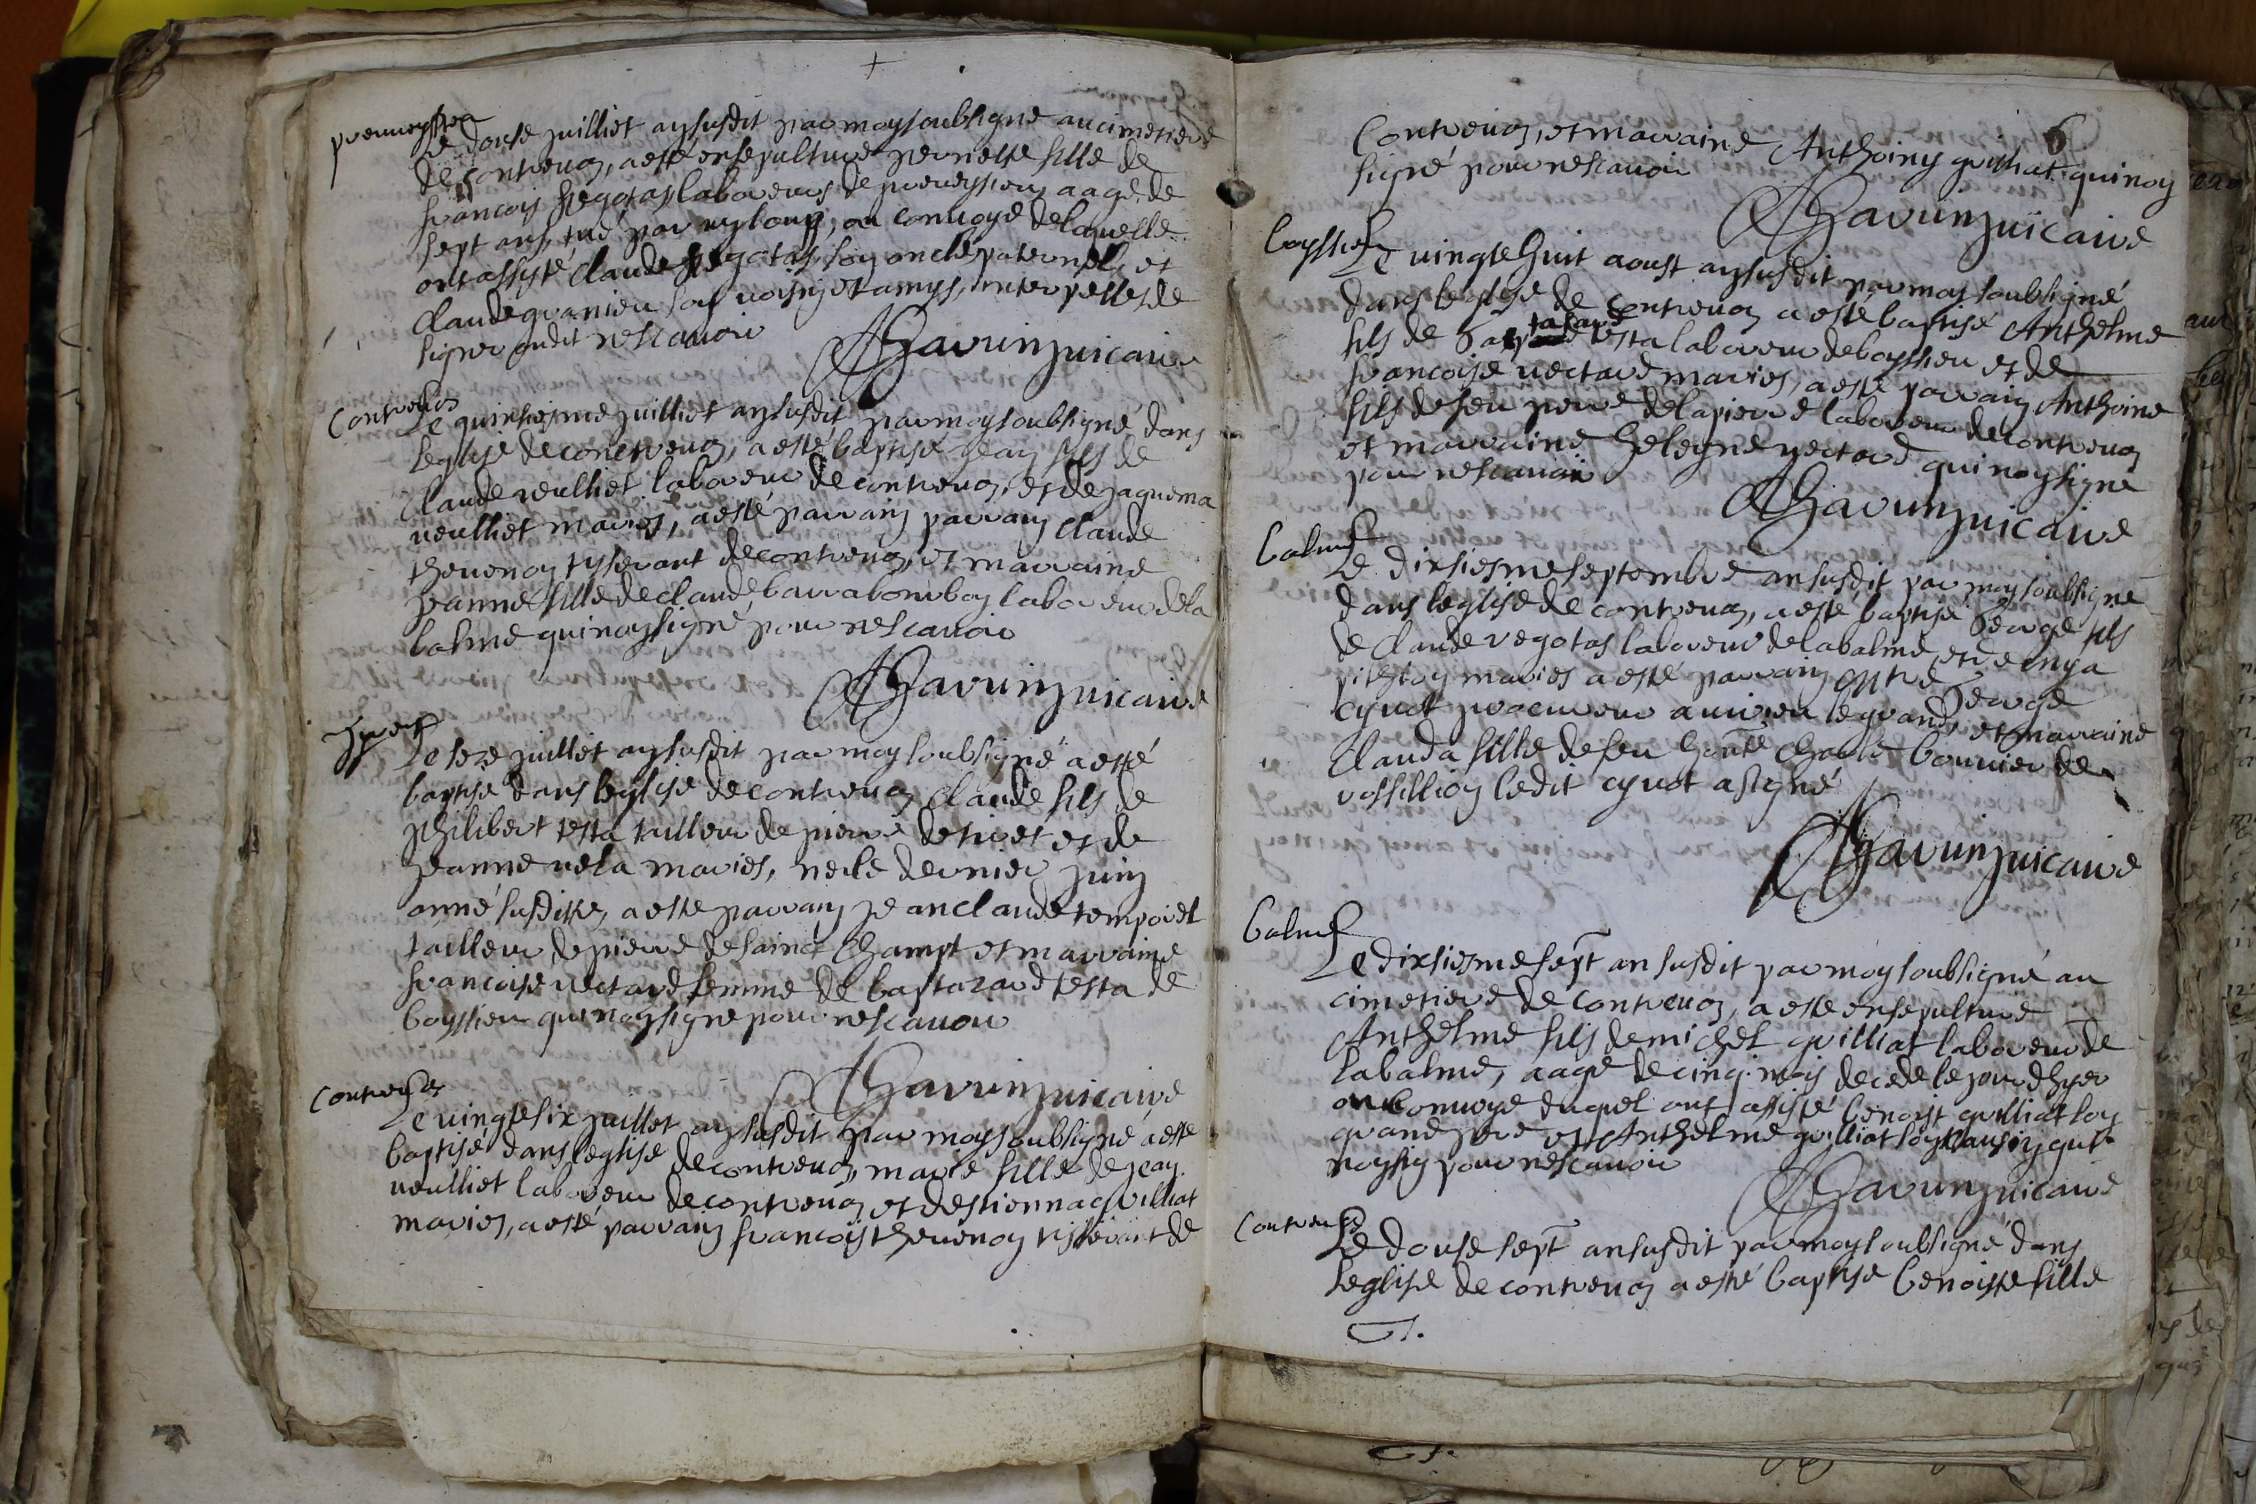 Le douse juilliet an susdit par moy soubsigné au cimetiere
de contrevoz, a esté ensepulturé pernette fille de
francoys regotas laboreur de premeyssieu aagé de
sept ans, tué par un loup, au convoye de laquelle
ont assysté Claude regotas son oncle paternel, et
Claude granieu son voisin et amys, interpellés de
signer ondit ne scavoir
Garvin vicaire
Contrevos
Le quinsiesme juilliet an susdit par moy soubsigné dans
leglise de contrevoz, a esté baptisé Jean fils de
Claude veulliet laboreur de contrevoz, et de jaquema
veulliet mariés, a esté parrain parrain Claude
thevenon tyserant de contrevoz, et marraine
jeanne fille de claude barrabombon laboreur de la
balme qui noy signé pour ne scavoir
Garvin vicaire
Le seze juillet an susdit par moy soubsigné a esté
baptisé dans leglise de contrevoz Claude fils de
philibert testa tailleur de pierre de and et de
jeanne vela mariés, ne le dernier juin
anné susditte, a este parrain jeanclaude temporel
tailleur de pierre de sainct Champt et marraine
francoise nectard femme de baptazard testa de
boyssieu qui noy signe pour ne scavoir
Garvin vicaire
Contrevos
Le vingte six juillet an susdit par moy soubsigné a esté
baptisé dans leglise de contrevoz, marie fille de jean
veulliet laboreur de contrevoz et destienna guilliat
mariés, a esté parrain francoys thevenon tisserant de
6
Contrevoz, et marraine Anthoiny guilliat qui noy
signé pour ne scavoir
Garvin vicaire
boyssieu
Le vingte huit aoust an susdit par moy soubsigné
dans leglise de contrevoz a esté baptisé Anthelme
fils de tasard testa laboreur de boyssieu et de
francoise nectard mariés, a esté parrain Anthoine
fils de feu pierre delapierre laboreur de contrevoz
et marraine helegne nectard qui noy signe
pour ne scavoir
Garvin vicaire
balme
Le dixsiesme septembre an susdit par moy soubsigné
dans leglise de contrevoz, a esté baptisé George fils
de Claude regotas laboreur de labalme, et de enya
pithion mariés a esté parrain George
cynot procureur a virieu le grand, et marraine
Clauda fille de feu charle bouvier de
rossillion ledit cynot a signé
Garvin vicaire
balme
Le dixsiesme sept an susdit par moy soubsigné au
cimetiere de contrevoz, a este ensepulturé
Anthelme fils de michel guilliat laboreur de
labalme, aagé de cinq mois decede le jour dhyer
au convoye duquel ont assisté benoist guilliat son
grand pere et Anthelme guilliat son qui
noy sig pour ne scavoir
Garvin vicaire
Contrevos
Le douse sept an susdit par moy soubsigné dans
leglise de contrevoz a esté baptisé benoiste fille